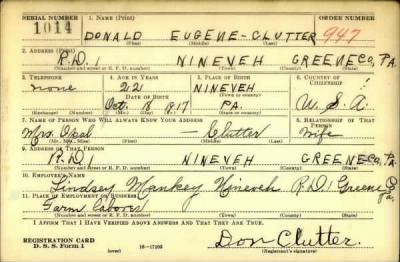 SERIAL NUMBER 1. NAME (Print) ORDER NUMBER
1014 DONALD EUGENE-CLUTTER 947
(First) (Middle) (Last)
2. ADDRESS (Print)
R.D.1 NINEVEH GREENE CO, PA.
(Number and street or R. F. D. number) (Town) (County) (State)
3. TELEPHONE 4. AGE IN YEARS 5. PLACE OF BIRTH 6. COUNTRY OF CITIZENSHIP
none 22 NINEVEH
DATE OF BIRTH (Town or county)
Oct. 8 1917 PA. U.S.A.
(Mo.) (Day) (Yr.) (State or country)
7. NAME OF PERSON WHO WILL ALWAYS KNOW YOUR ADDRESS 8. RELATIONSHIP OF THAT PERSON
Mrs. Opal — Clutter wife
(Mr., Mrs., Miss) (First) (Middle) (Last)
9. ADDRESS OF THAT PERSON
R.D.1 NINEVEH GREENE CO, PA.
(Number and street or R. F. D. number) (Town) (County) (State)
10. EMPLOYER'S NAME
Lindsey Mankey Nineveh R.D.1 Greene Co Pa.
11. PLACE OF EMPLOYMENT OR BUSINESS
Farm Labor
(Number and street or R. F. D. number) (Town) (County) (State)
I AFFIRM THAT I HAVE VERIFIED ABOVE ANSWERS AND THAT THEY ARE TRUE.
REGISTRATION CARD
D. S. S. Form 1 (over) 16—17105 Don Clutter.
(Registrant's signature)